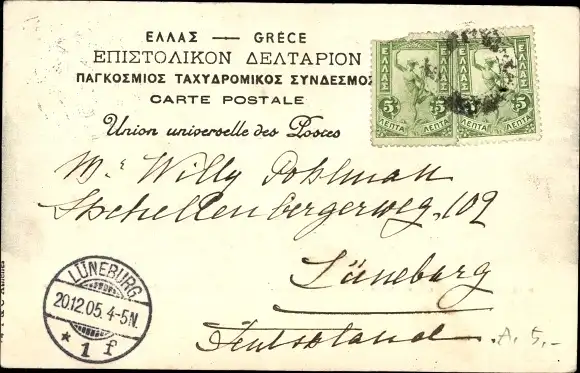 ΕΛΛΑΣ — GRÈCE
ΕΠΙΣΤΟΛΙΚΟΝ ΔΕΛΤΑΡΙΟΝ
ΠΑΓΚΟΣΜΙΟΣ ΤΑΧΥΔΡΟΜΙΚΟΣ ΣΥΝΔΕΣΜΟΣ
CARTE POSTALE
Union universelle des Postes
ΕΛΛΑΣ
5 5
ΛΕΠΤΑ ΛΕΠΤΑ
ΕΛΛΑΣ
5 5
ΛΕΠΤΑ ΛΕΠΤΑ
Mr Willy Pohlman
Schellenbergerweg. 109
Lüneburg
Deutschland
A. 5.-
LÜNEBURG
20.12.05. 4-5N.
* 1 f